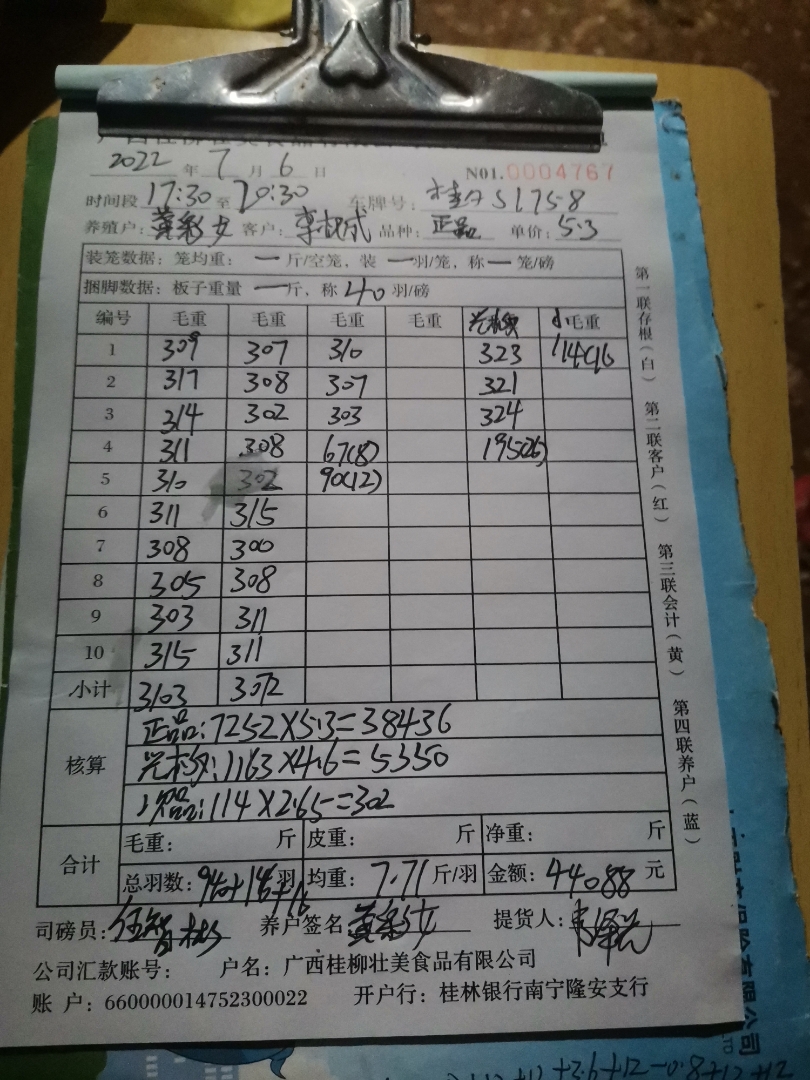 2022 年 7 月 6 日 N01.0004767
时间段 17:30 至 20:30 车牌号: 桂A S1758
养殖户: 黄彩女 客户: 李树成 品种: 正品 单价: 5.3
装笼数据: 笼均重: 一 斤/空笼, 装 一 羽/笼, 称 一 笼/磅
捆脚数据: 板子重量 一 斤, 称 40 羽/磅
编号 毛重 毛重 毛重 毛重 毛重
1 309 307 310 323 114(16
2 317 308 307 321
3 314 302 303 324
4 311 308 67(8) 195(26)
5 310 302 90(12)
6 311 315
7 308 300
8 305 308
9 303 311
10 315 311
小计 3103 3072
核算
正品: 7252×5.3=38436
1163×4.6=5350
次品: 114×2.65=302
合计
毛重: 斤 皮重: 斤 净重: 斤
总羽数: 940+146+16 羽 均重: 7.71 斤/羽 金额: 44088 元
司磅员: 养户签名 黄彩女 提货人:
公司汇款账号: 户名: 广西桂柳壮美食品有限公司
账 户: 660000014752300022 开户行: 桂林银行南宁隆安支行
第一联存根(白) 第二联客户(红) 第三联会计(黄) 第四联养户(蓝)
+12+3.6+12-0.8+12+12